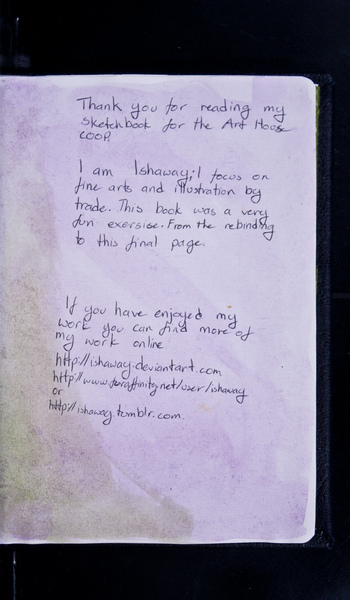 Thank you for reading my
sketchbook for the Art House
COOP.
I am Ishaway; I focus on
fine arts and illustration by
trade. This book was a very
fun exersise. From the rebinding
to this final page.
If you have enjoyed my
work you can find more of
my work online
http://ishaway.deviantart.com
http://www.furaffinity.net/user/ishaway
or
http://ishaway.tumblr.com.